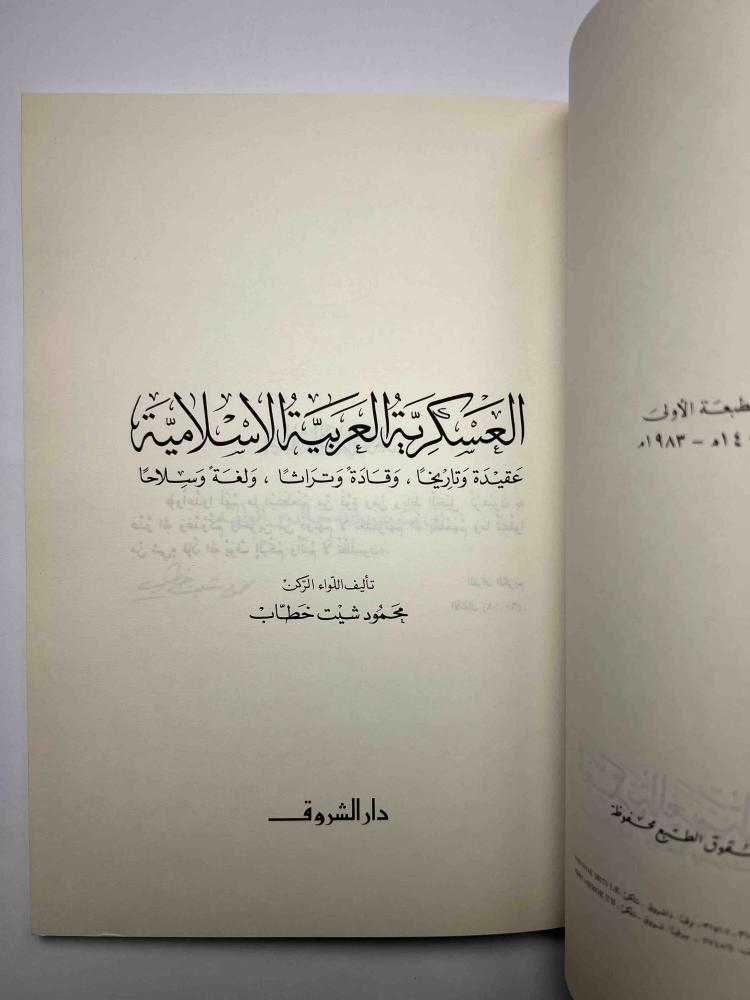 العَسْكَرِيَّةُ العَرَبِيَّةُ الإسْلَامِيَّة
عَقِيدَة وَتَارِيخًا ، وَقَادَةً وَتراثًا ، وَلغَةً وَسِلَاحًا
تأليف اللواء الركن
محمُود شيت خطّاب
دار الشروق
طبعَة الأولى
هـ - ١٩٨٣م
قوق الطبع محفوظة